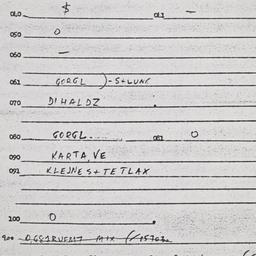 010 $ 011 -
050 0
060 -
061 GORGL )-S+LUNC
070 DIHALDZ
080 GORGL. 081 0
090 KARTA, VE
091 KLEJNES+TETLAX
100 0
900 MIX